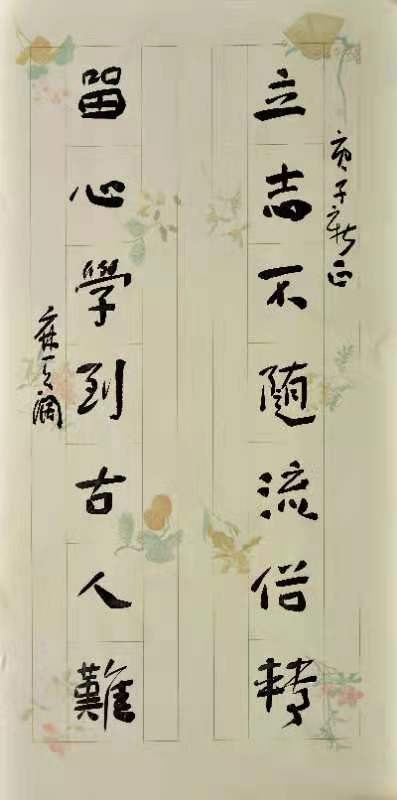 庚子新正
立志不随流俗轉
留心學到古人難
麻天阔